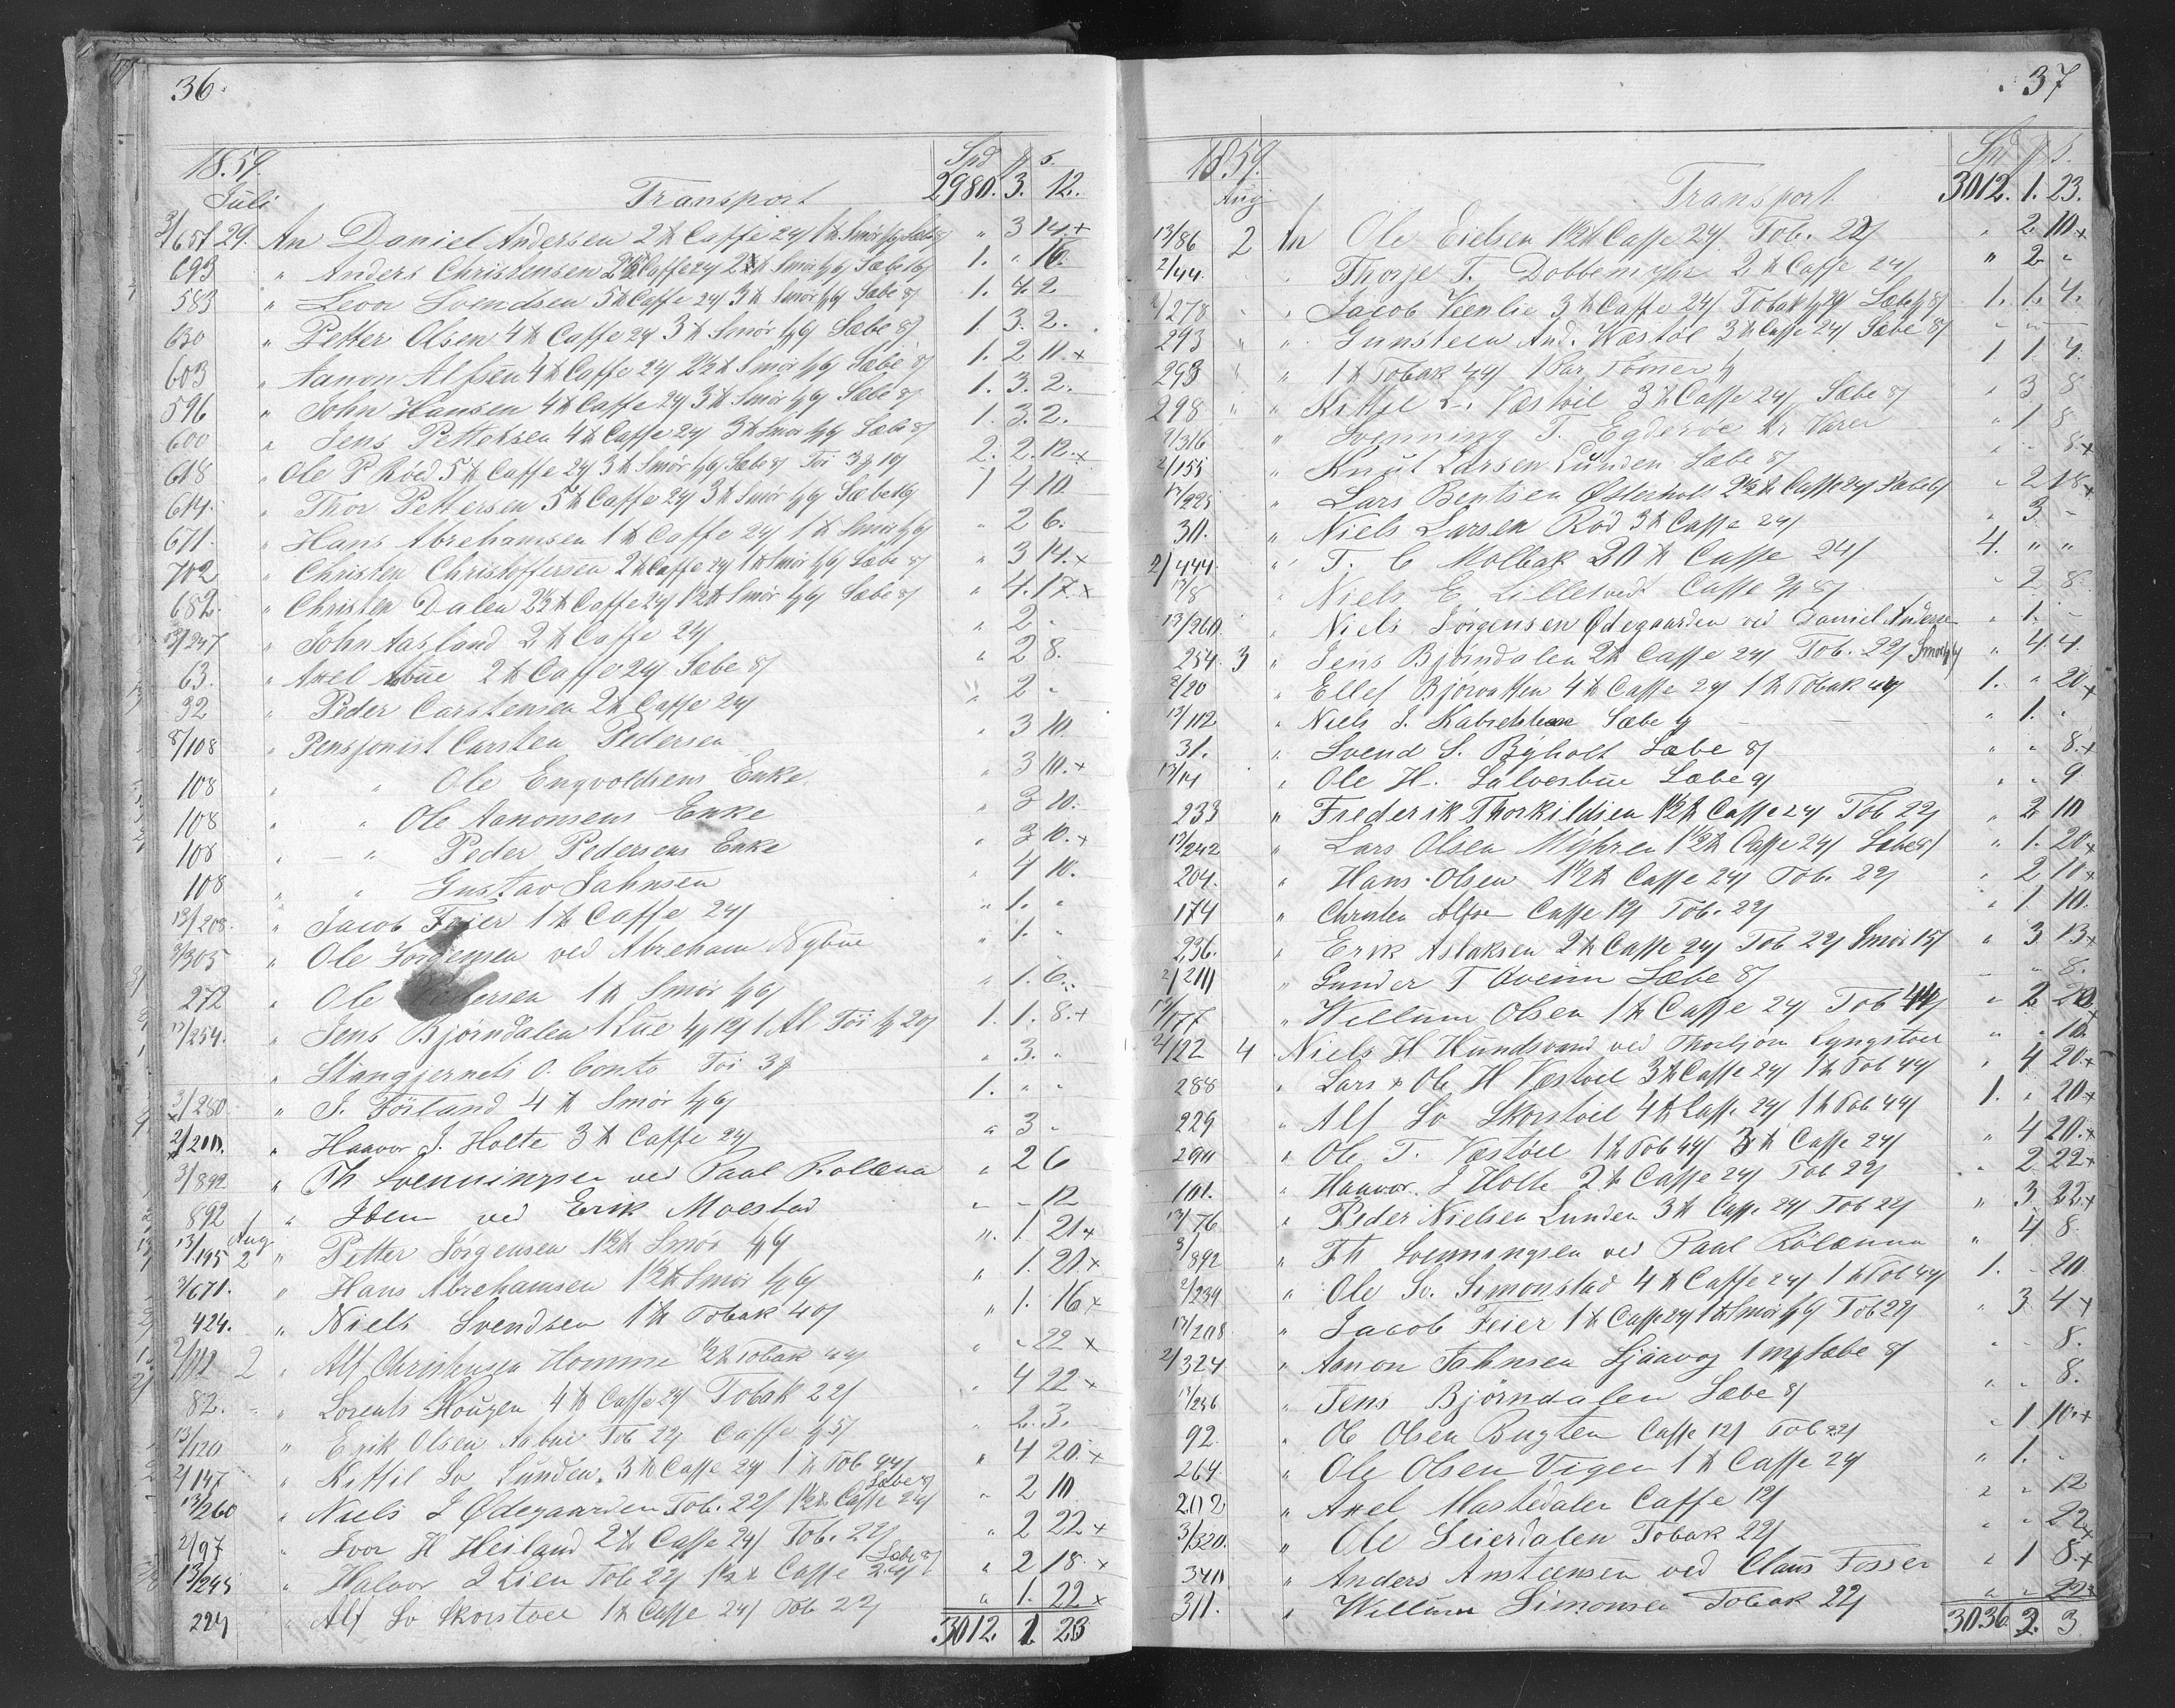 36.
1859. Spd # s.
Juli Transport 2980. 3. 12.
3/651 29. An Daniel Andersen 2 ℔ Caffe 24/ 1 ℔ Smør Sæbe 8/ " 3 14 +
693 " Anders Christensen Caffe 24 Smør Sæbe 1. " 16.
583 " Levor Svendsen 5 ℔ Caffe 24/ 3 ℔ Smør Sæbe 8/ 1. 4. 2.
630 " Petter Olsen 4 ℔ Caffe 24 3 ℔ Smør Sæbe 8/ 1. 3. 2.
603 " Aanon Alfsen 4 ℔ Caffe 24 2½ ℔ Smør Sæbe 8/ 1. 2 11. +
596 " John Hansen 4 ℔ Caffe 24/ 3 ℔ Smør Sæbe 8/ 1. 3. 2.
600 " Jens Pettersen 4 ℔ Caffe 24/ 3 ℔ Smør Sæbe 8/ 1. 3. 2.
618 " Ole P Röed 5 ℔ Caffe 24 3 ℔ Smör Sæbe 8/ Töi 2. 2. 12. +
614. " Thor Pettersen 5 ℔ Caffe 24 3 ℔ Smør Sæbe 1 4 10.
671. " Hans Abrehamsen 1 ℔ Caffe 24/ 1 ℔ Smør " 2 6.
702 " Christen Christoffersen 2 ℔ Caffe 24 1 ℔ Smør Sæbe 8/ " 3 14. +
682. " Christen Dalen 2½ ℔ Caffe 24/ 1½ ℔ Smør Sæbe 8/ " 4. 17. +
13/247 " John Aasland 2 ℔ Caffe 24/ " 2 "
63. " Axel Abue 2 ℔ Caffe 24 Sæbe 8/ " 2 8.
92 " Peder Carstensen 2 ℔ Caffe 24 " 2 "
8/108 " Pensjonist Carsten Pedersen " 3 10.
108 " " Ole Engvoldsens Enke " 3 10. +
108 " " Ole Aanonsens Enke " 3 10.
108 " " Peder Pedersens Enke " 3 10. +
108 " " Gustav Jahnsen " 4 10.
13/208. " Jacob Feier 1 ℔ Caffe 24/ " 1. "
3/305 " Ole Jörgensen ved Abreham Nybue " 1. "
272 " Ole 1 ℔ Smør " 1. 6.
13/254. " Jens Bjørndalen 1 Lue Töi 1. 1. 8. +
" Stangjernets O. Conto Töi " 3. "
3/280 " J. Förland 4 ℔ Smør 1. " "
2/200. " Haavor J. Holte 3 ℔ Caffe 24 " 3 "
3/892 " Th Svenningsen ved Paal Rolænna " 2 6
892 " Idem ved Erik Moestad " " 12
13/195 Aug 2 " Petter Jörgensen 1½ ℔ Smør " 1. 21 +
3/671. " Hans Abrehamsen 1½ ℔ Smør " 1. 21. +
424. " Niels Svendsen 1 ℔ Tobak 40/ " 1. 16 +
2 " Alf Christensen Homme ½ ℔ Tobak 44 " " 22 +
82. " Lorents Hougen 4 ℔ Caffe 24 Tobak 22/ " 4 22 +
13/120 " Erik Olsen Aabue Tob 22 Caffe " 2. 3.
2/147 " Kittil Sv Lunden. 3 ℔ Caffe 24 1 ℔ Tob 44/ " 4 20. +
13/260 " Niels J Ødegaarden Tob. 22/ 1½ ℔ Caffe 24/ Sæbe 8/ " 2 10
2/97 " Ivor H Heiland 2 ℔ Caffe 24/ Tob. 22/ " 2 22 +
13/245 " Halvor J Lien Tob 22/ 1½ ℔ Caffe 24/ Sæbe 8/ " 2 18. +
229 " Alf Sv Skorstoel 1 ℔ Caffe 24/ Tob 22/ " 1. 22 +
3012. 1. 23
37
1859. Spd # s.
Aug Transport 3012. 1. 23.
13/86 2 An Ole Eielsen 1½ ℔ Caffe 24/ Tob. 22/ " 2. 10. +
2/44. " Thorje T. Dobbemyhr 2 ℔ Caffe 24/ " 2 "
2/278 " Jacob Veenlie 3 ℔ Caffe 24/ Tobak Sæbe 8/ 1. 1. 4.
293 " Gunsteen And. Wæstöl 3 ℔ Caffe 24 Sæbe 8/ " " "
293 " 1 ℔ Tobak 44/ 1 Par Tömer 1 1. 4.
298 " Kittil L. Væstöl 3 ℔ Caffe 24/ Sæbe 8/ " 3 8
2/316 " Svenning T. Egderöe Varer " 1 8
2/155 " Knut Larsen Lunden Sæbe 8/ " " 8 +
13/225 " Lars Bentsen Østerholt 2½ ℔ Caffe 24/ Sæbe " 2 18 +
30. " Niels Larsen Röd 3 ℔ Caffe 24/ " 3 "
2/444. " T. C Molbak 20 ℔ Caffe 24/ 4. " "
13/8 " Niels E Lilletvedt Caffe " 2 8.
13/260. " Niels Jörgensen Ødegaarden ved Daniel Andersen " 1. "
254. 3 " Jens Bjørndalen 2 ℔ Caffe 24/ Tob. 22/ Smør " 4. 4.
8/20 " Ellef Bjorvatten 4 ℔ Caffe 24 1 ℔ Tobak 44/ 1. " 20 +
13/112 " Niels J. Sæbe " 1. "
31. " Svend S. Byholt Sæbe 8/ " " 8. +
13/14 " Ole H. Salvesbue Sæbe 9/ " " 9
233 " Frederik Thorkildsen 1½ ℔ Caffe 24 Tob 22/ " 2 10
13/242 " Lars Olsen Myhren 1½ ℔ Caffe 24/ Sæbe 8/ " 1. 20 +
204. " Hans Olsen 1½ ℔ Caffe 24/ Tob. 22/ " 2 10 +
174 " Christen Alfsen Caffe 12/ Tob. 22/ " 1 10.
236. " Erik Aslaksen 2 ℔ Caffe 24 Tob 22/ Smør 15/ " 3 13 +
2/200 " Gunder T Aveim Sæbe 8/ " " 8.
13/77 " Willum Olsen 1 ℔ Caffe 24 Tob 44/ " 2 20
2/22 4 " Niels H Hundsvand ved Thorbjörn Lyngstoel " " 10.
288 " Lars & Ole H Væstoel 3 ℔ Caffe 24 1 ℔ Tob 44/ " 4 20. +
229 " Alf Sv Skorstoel 4 ℔ Caffe 24/ 1 ℔ Tob 44/ 1. " 20 +
290 " Ole T. Væstöel 1 ℔ Tob 44/ 3 ℔ Caffe 24/ " 4 20. +
101. " Haavor J Holte 2 ℔ Caffe 24/ Tob 22/ " 2 22 +
13/76 " Peder Nielsen Lunden 3 ℔ Caffe 24/ Tob 22/ " 3 22. +
3/892 " Th Svenningsen ved Paal Rölænna " 4 8.
2/239 " Ole Sv. Simonstad 4 ℔ Caffe 24/ 1 ℔ Tob 44/ 1. " 20
13/208 " Jacob Feier 1 ℔ Caffe 24 1 ℔ Smør Tob 22/ " 3 4 +
2/324 " Aanon Jahnsen Ljaavog Sæbe 8/ " " 8.
13/256 " Jens Bjørndalen Sæbe 8/ " " 8.
92. " Ole Olsen Bugten Caffe 12/ Tob 22/ " 1 10. +
264. " Ole Olsen Vigen 1 ℔ Caffe 24 " 1. "
202 " Axel Mastedalen Caffe 12/ " " 12
3/320. " Ole Leierdalen Tobak 22/ " " 22 +
340 " Anders Ansteensen ved Claus Fosser " 1 8. +
311. " Willum Simonsen Tobak 22/ " " 22 +
3036. 2. 3